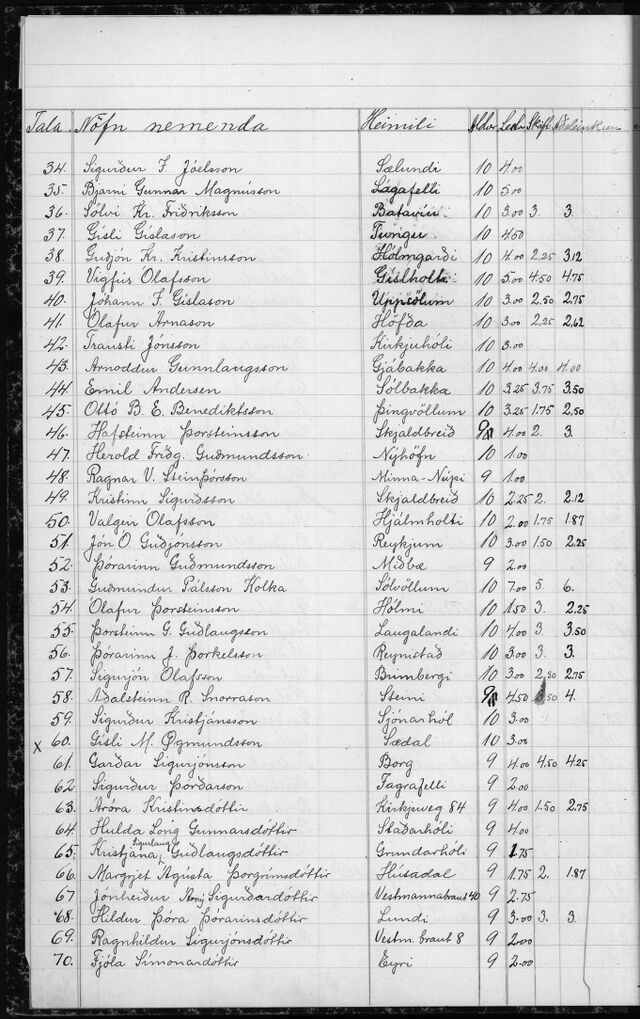 Tala. Nöfn nemenda Heimili Aldur Lestr. Skift. Aðaleink.
34. Sigurður F. Jóelsson Sælundi 10 4.00
35. Bjarni Gunnar Magnússon Lágafelli 10 5.00
36. Sölvi Kr. Friðriksson Batavíu 10 3.00 3. 3.
37. Gísli Gíslason Tungu 10 4.50
38. Guðjón Kr. Kristinsson Hólmgarði 10 4.00 2.25 3.12
39. Vigfús Ólafsson Gíslholti 10 5.00 4.50 4.75
40. Jóhann F. Gíslason Uppsölum 10 3.00 2.50 2.75
41. Ólafur Árnason Höfða 10 3.00 2.25 2.62
42. Trausti Jónsson Kirkjuhóli 10 3.00
43. Arnoddur Gunnlaugsson Gjábakka 10 4.00 4.00 4.00
44. Emil Andersen Sólbakka 10 3.25 3.75 3.50
45. Ottó B. E. Benediktsson Þingvöllum 10 3.25 1.75 2.50
46. Hafsteinn Þorsteinsson Skjaldbreið 9 4.00 2. 3.
47. Herold Friðg. Guðmundsson Nýhöfn 10 1.00
48. Ragnar V. Steinþórsson Minna-Núpi 9 1.00
49. Kristinn Sigurðsson Skjaldbreið 10 2.25 2. 2.12
50. Valgeir Ólafsson Hjálmholti 10 2.00 1.75 1.87
51. Jón Ó. Guðjónsson Reykjum 10 3.00 1.50 2.25
52. Þórarinn Guðmundsson Miðbæ 9 2.00
53. Guðmundur Pálsson Kolka Sólvöllum 10 7.00 5. 6.
54. Ólafur Þorsteinsson Hólmi 10 1.50 3. 2.25
55. Þorsteinn G. Guðlaugsson Laugalandi 10 4.00 3. 3.50
56. Þórarinn J. Þorkelsson Reynistað 10 3.00 3. 3.
57. Sigurjón Ólafsson Burnbergi 10 3.00 2.50 2.75
58. Aðalsteinn R. Snorrason Steini 9 4.50 3.50 4.
59. Sigurður Kristjánsson Sjónarhól 10 3.00
x 60. Gísli M. Øgmundsson Sædal 10 3.00
61. Garðar Sigurjónsson Borg 9 4.00 4.50 4.25
62. Sigurður Þórðarson Fagrafelli 9 2.00
63. Aróra Kristinsdóttir Kirkjuveg 84 9 4.00 1.50 2.75
64. Hulda Long Gunnarsdóttir Staðarhóli 9 4.00
65. Kristjana Sigurlaug Guðlaugsdóttir Grundarhóli 9 1.75
66. Margrjet Ágústa Þorgrímsdóttir Húsadal 9 1.75 2. 1.87
67. Jónheiður Sigurðardóttir Vestmannabraut 40 9 2.75
68. Hildur Þóra Þórarinsdóttir Lundi 9 3.00 3. 3.
69. Ragnhildur Sigurjónsdóttir Vestm.braut 8 9 2.00
70. Fjóla Símonardóttir Eyri 9 2.00